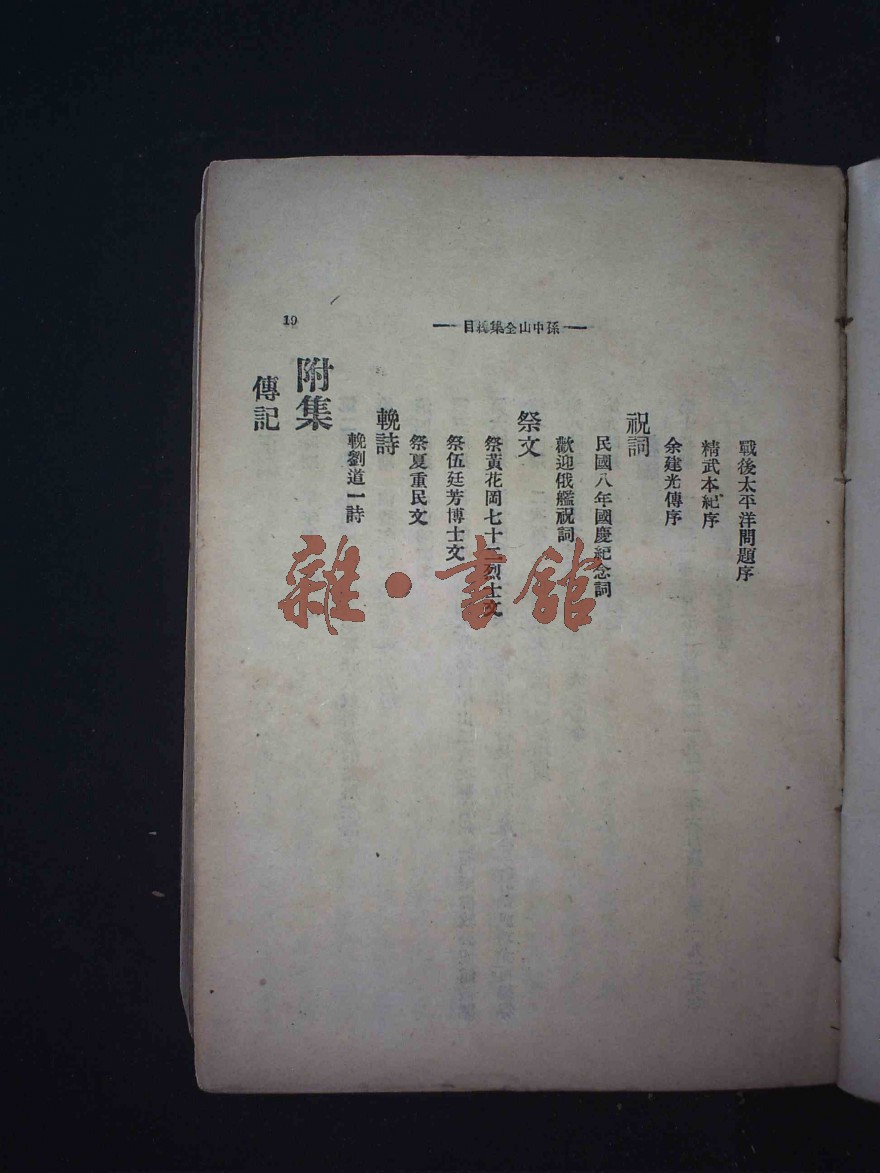 孫中山全集總目
19
戰後太平洋問題序
精武本紀序
余建光傳序
祝詞
民國八年國慶紀念詞
歡迎俄艦祝詞
祭文
祭黃花岡七十二烈士文
祭伍廷芳博士文
祭夏重民文
輓詩
輓劉道一詩
附集
傳記
雜·書館